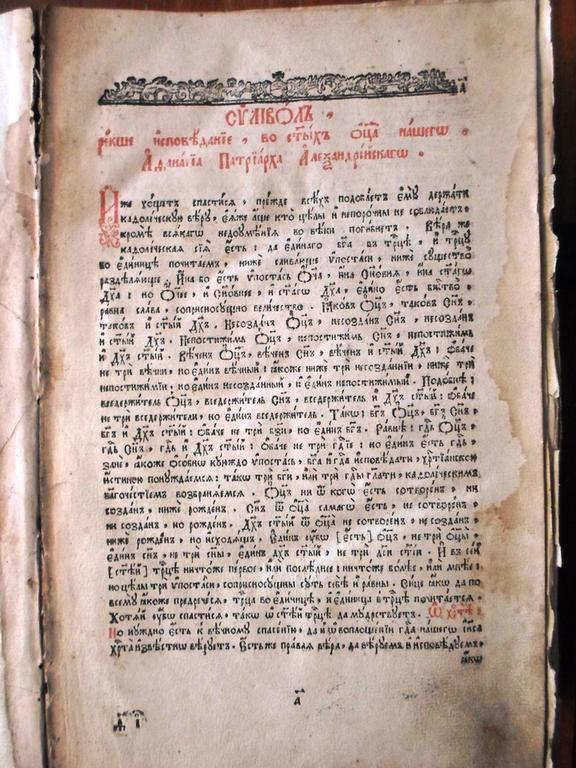 СѴМВО́ЛЪ,
ре́кше и҆сповѣ́данїе, во ст҃ы́хъ ѻ҆ц҃а̀ на́шегѡ
А҆ѳана́сїа Патрїа́рха А҆леѯандрі́йскагѡ.
И҆́же хо́щетъ спасти́сѧ, пре́жде всѣ́хъ подоба́етъ є҆мꙋ̀ держа́ти
каѳоли́ческꙋю вѣ́рꙋ, є҆ѧ́же а҆́ще кто̀ цѣ́лы и҆ непоро́чны не соблюда́етъ,
кромѣ̀ всѧ́кагѡ недоꙋмѣ́нїѧ во вѣ́ки поги́бнетъ. Вѣ́ра же
каѳоли́ческаѧ сїѧ̀ є҆́сть: да є҆ди́наго бг҃а въ трⷪ҇цѣ, и҆ трⷪ҇цꙋ
во є҆ди́ницѣ почита́емъ, нижѐ слива́юще ѵ҆поста́си, нижѐ сꙋщество̀
раздѣлѧ́юще. И҆́на бо є҆́сть ѵ҆поста́сь Ѻ҆́ча, и҆́на Сн҃о́внѧ, и҆́на ст҃а́гѡ
Дх҃а: но Ѻ҆́чее, и҆ Сн҃о́внее, и҆ ст҃а́гѡ Дх҃а, є҆ди́но є҆́сть бж҃ество̀,
ра́вна сла́ва, соприсносꙋ́щно вели́чество. Ꙗ҆ко́въ Ѻ҆ц҃ъ, тако́въ Сн҃ъ,
тако́въ и҆ ст҃ы́й Дх҃ъ. Несозда́нъ Ѻ҆ц҃ъ, несозда́нъ Сн҃ъ, несозда́нъ
и҆ ст҃ы́й Дх҃ъ. Непостижи́мъ Ѻ҆ц҃ъ, непостижи́мъ Сн҃ъ, непостижи́мъ
и҆ Дх҃ъ ст҃ы́й. Вѣ́ченъ Ѻ҆ц҃ъ, вѣ́ченъ Сн҃ъ, вѣ́ченъ и҆ ст҃ы́й Дх҃ъ: ѻ҆ба́че
не трѝ вѣ́чни, но є҆ди́нъ вѣ́чный: ꙗ҆́коже нижѐ трѝ несозда́ннїи, нижѐ трѝ
непостижи́мїи, но є҆ди́нъ несозда́нный, и҆ є҆ди́нъ непостижи́мый. Подо́бнѣ:
вседержи́тель Ѻ҆ц҃ъ, вседержи́тель Сн҃ъ, вседержи́тель и҆ Дх҃ъ ст҃ы́й: ѻ҆ба́че
не трѝ вседержи́тели, но є҆ди́нъ вседержи́тель. Та́кѡ: бг҃ъ Ѻ҆ц҃ъ, бг҃ъ Сн҃ъ,
бг҃ъ и҆ Дх҃ъ ст҃ы́й: ѻ҆ба́че не трѝ бз҃и, но є҆ди́нъ бг҃ъ. Ра́внѣ: гдⷭ҇ь Ѻ҆ц҃ъ,
гдⷭ҇ь Сн҃ъ, гдⷭ҇ь и҆ Дх҃ъ ст҃ы́й: ѻ҆ба́че не трѝ гдⷭ҇їе: но є҆ди́нъ є҆́сть гдⷭ҇ь,
занѐ, ꙗ҆́коже ѻ҆со́бнѡ ку́юждо ѵ҆поста́сь, бг҃а и҆ гдⷭ҇а и҆сповѣ́дати, хрⷭ҇тїа́нскою
и҆́стиною понꙋжда́емсѧ: та́кѡ трѝ бг҃и, и҆лѝ трѝ гдⷭ҇ы глаго́лати, каѳоли́ческимъ
благоче́стїемъ возбранѧ́емсѧ. Ѻ҆ц҃ъ ни ѿ когѡ́ є҆́сть сотворе́нъ, ни
созда́нъ, нижѐ рожде́нъ. Сн҃ъ ѿ ѻ҆ц҃а̀ самагѡ̀ є҆́сть, не сотворе́нъ,
ни созда́нъ, но рожде́нъ. Дх҃ъ ст҃ы́й ѿ ѻ҆ц҃а̀ не сотворе́нъ, не созда́нъ,
нижѐ рожде́нъ, но и҆сходѧ́щь. Є҆ди́нъ ᲂу҆́бѡ [є҆́сть] Ѻ҆ц҃ъ, не трѝ ѻ҆ц҃ы̀:
є҆ди́нъ сн҃ъ, не трѝ сн҃ы: є҆ди́нъ дх҃ъ ст҃ы́й, не трѝ дс҃и ст҃і́и. И҆ въ се́й
[ст҃ѣ́й] трⷪ҇цѣ ничто́же пе́рвое, и҆лѝ послѣ́днее: ничто́же бо́лѣе, и҆лѝ мнѣ́е:
но цѣ́лы трѝ ѵ҆поста́си, соприсносꙋ́щны сꙋ́ть себѣ̀ и҆ ра́вны. Си́це ꙗ҆́кѡ да по
всемꙋ̀ ꙗ҆́коже предрече́сѧ, трⷪ҇ца во є҆ди́ницѣ, и҆ є҆ди́ница въ трⷪ҇цѣ почита́етсѧ.
Хотѧ́й ᲂу҆́бѡ спасти́сѧ, та́кѡ ѡ҆ ст҃ѣ́й трⷪ҇цѣ да мꙋ́дрствꙋетъ. Ѡ҆ хрⷭ҇тѣ̀:
Но нꙋ́ждно є҆́сть к вѣ́чномꙋ спасе́нїю, да и҆ ѡ҆ воплоще́нїи гдⷭ҇а на́шегѡ і҆и҃са
хрⷭ҇та̀ и҆звѣ́стнѡ вѣ́рꙋетъ. Є҆́сть же пра́ваѧ вѣ́ра, да вѣ́рꙋемъ и҆ и҆сповѣ́дꙋемъ,
ꙗ҆́кѡ
а҃